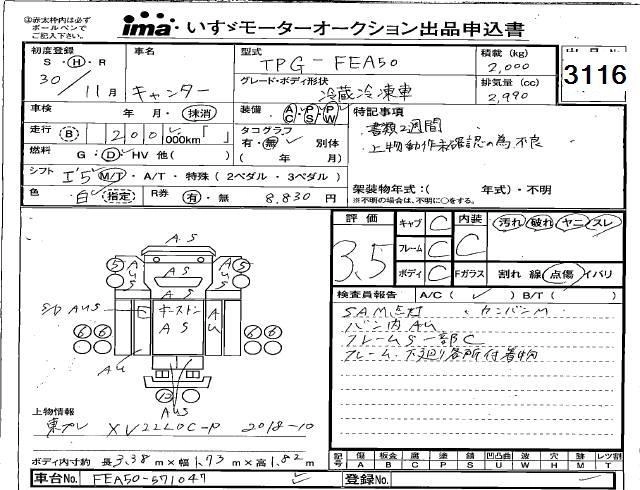 ③赤太枠内は必ず
ボールペンで
ご記入下さい。
ima いすゞモーターオークション出品申込書
初度登録
S・H・R
30/11月
車名
キャンター
型式
TPG-FEA50
グレード・ボディ形状
冷蔵冷凍車
積載 (kg)
2,000
排気量 (cc)
2,990
3116
車検
年・月・抹消
装備
AC・PS・PW
特記事項
・書類2週間
・上物動作未確認の為不良
走行 B 200,000km「 」
タコグラフ
有・無 別体
( 年 月)
燃料 G・D・HV 他( )
シフト I'5 M/T・A/T・特殊 (2ペダル・3ペダル)
架装物年式:( 年式)・不明
※不明の場合は、不明に○をする。
色 白 指定
R券 有・無 8,830 円
評価
3.5
キャブ C
フレーム C
ボディ C
内装 C
汚れ 破れ ヤニ スレ
Fガラス 割れ 線 点傷 イバリ
検査員報告 A/C( ✓ ) B/T( )
SAM点灯 カンバンM
バン内AU
フレームS一部C
フレーム・下廻り各所付着物
AS
AUS
AS
AUS
5
5
AS
S/D AUS
ホーストン
AS
AU
6 6
6 6
AU
12
AUS
上物情報
東プレ XV22LOC-P 2018-10
ボディ内寸約 長3.38m×幅1.73m×高1.82m
記号 傷A 板金B 腐C 塗P 錆S 凹凸曲U 波W 穴H 跡M レツ割T
車台No. FEA50-571047
登録No.